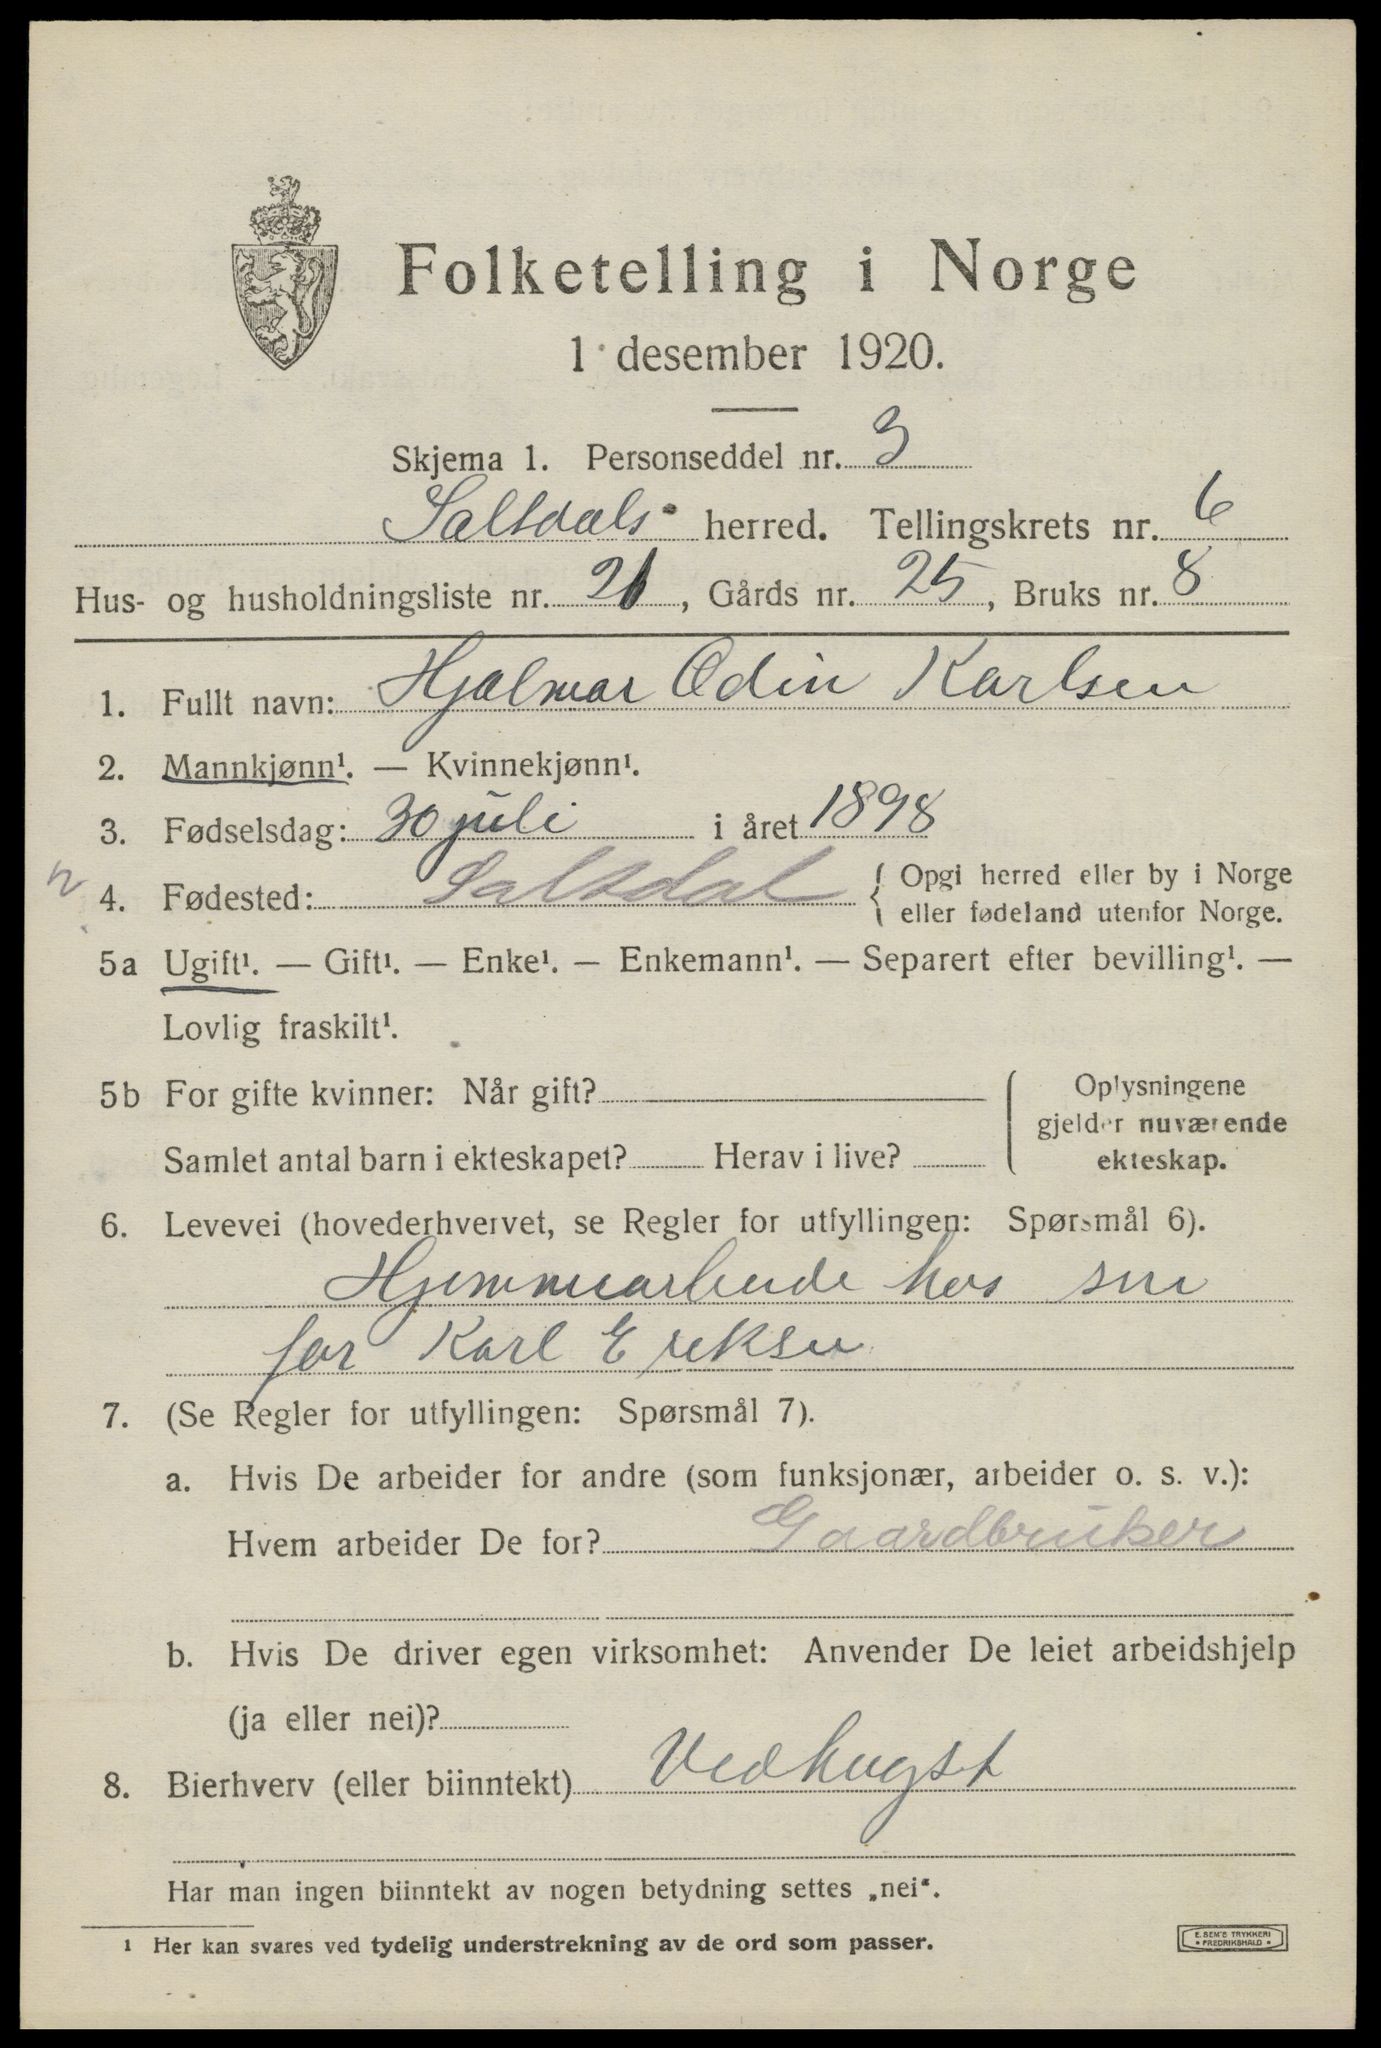 Folketelling i Norge
1 desember 1920.
Skjema 1. Personseddel nr. 3
Saltdals herred. Tellingskrets nr. 6
Hus- og husholdningsliste nr. 21, Gårds nr. 25, Bruks nr. 8
1. Fullt navn: Hjalmar Odin Karlsen
2. Mannkjønn¹. — Kvinnekjønn¹.
3. Fødselsdag: 30 juli i året 1898
4. Fødested: Saltdal { Opgi herred eller by i Norge
eller fødeland utenfor Norge.
5a Ugift¹. — Gift¹. — Enke¹. — Enkemann¹. — Separert efter bevilling¹. —
Lovlig fraskilt¹.
5b For gifte kvinner: Når gift?
Samlet antal barn i ekteskapet? Herav i live?
Oplysningene
gjelder nuværende
ekteskap.
6. Levevei (hovederhvervet, se Regler for utfyllingen: Spørsmål 6).
Hjemmearbeide hos sin
far Karl Eriksen
7. (Se Regler for utfyllingen: Spørsmål 7).
a. Hvis De arbeider for andre (som funksjonær, arbeider o. s. v.):
Hvem arbeider De for? Gaardbruker
b. Hvis De driver egen virksomhet: Anvender De leiet arbeidshjelp
(ja eller nei)?
8. Bierhverv (eller biinntekt) Vedhugst
Har man ingen biinntekt av nogen betydning settes „nei“.
¹ Her kan svares ved tydelig understrekning av de ord som passer.
E. SEM'S TRYKKERI
• FREDRIKSHALD •